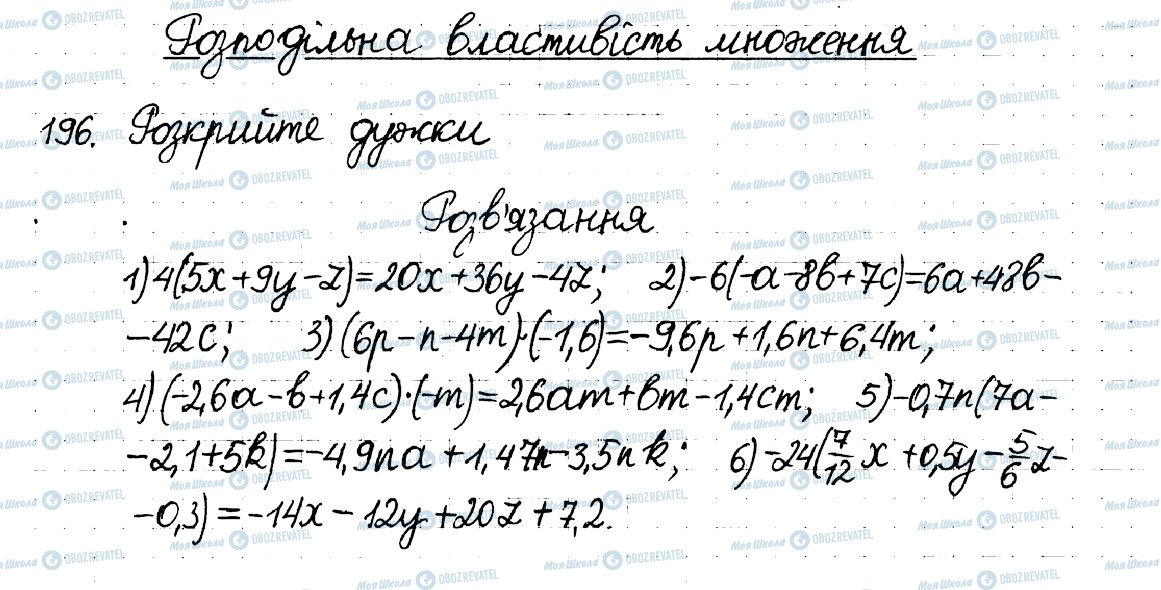 Розподільна властивість множення
196. Розкрийте дужки
Розв'язання
1) 4(5x+9y-z)=20x+36y-4z; 2) -6(-a-8b+7c)=6a+48b-
-42c; 3) (6p-n-4m)·(-1,6)=-9,6p+1,6n+6,4m;
4) (-2,6a-b+1,4c)·(-m)=2,6am+bm-1,4cm; 5) -0,7n(7a-
-2,1+5k)=-4,9na+1,47n-3,5nk; 6) -24(7/12 x+0,5y-5/6 z-
-0,3)=-14x-12y+20z+7,2.